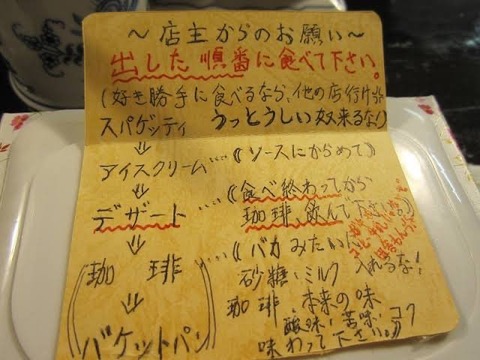 ～店主からのお願い～
出した順番に食べて下さい。
(好き勝手に食べるなら、他の店行け!!
スパゲッティ うっとうしい奴来るな!)
⇓
アイスクリーム‥‥《ソースにからめて》
⇓
デザート‥‥《食べ終わってから
珈琲、飲んで下さい。》
⇓
珈琲‥‥《バカみたいに
砂糖・ミルク 入れるな!
⇓
バケットパン
珈琲 本来の味
酸味・苦味・コク
味わって下さい。》